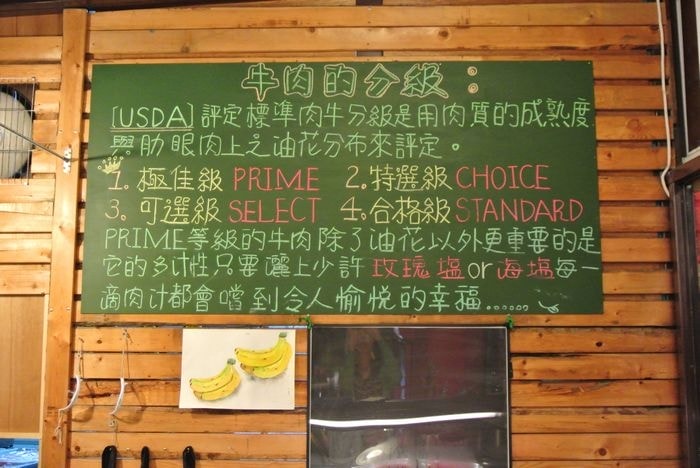 牛肉的分級：
[USDA]評定標準肉牛分級是用肉質的成熟度
與肋眼肉上之油花分布來評定。
1. 極佳級 PRIME 2. 特選級 CHOICE
3. 可選級 SELECT 4. 合格級 STANDARD
PRIME等級的牛肉除了油花以外更重要的是
它的多汁性只要灑上少許 玫瑰塩 or 海塩每一
滴肉汁都會嚐到令人愉悅的幸福......